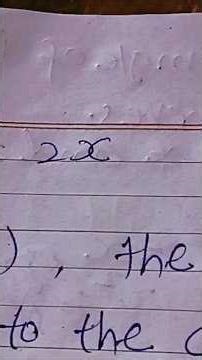 2x
), the
to the